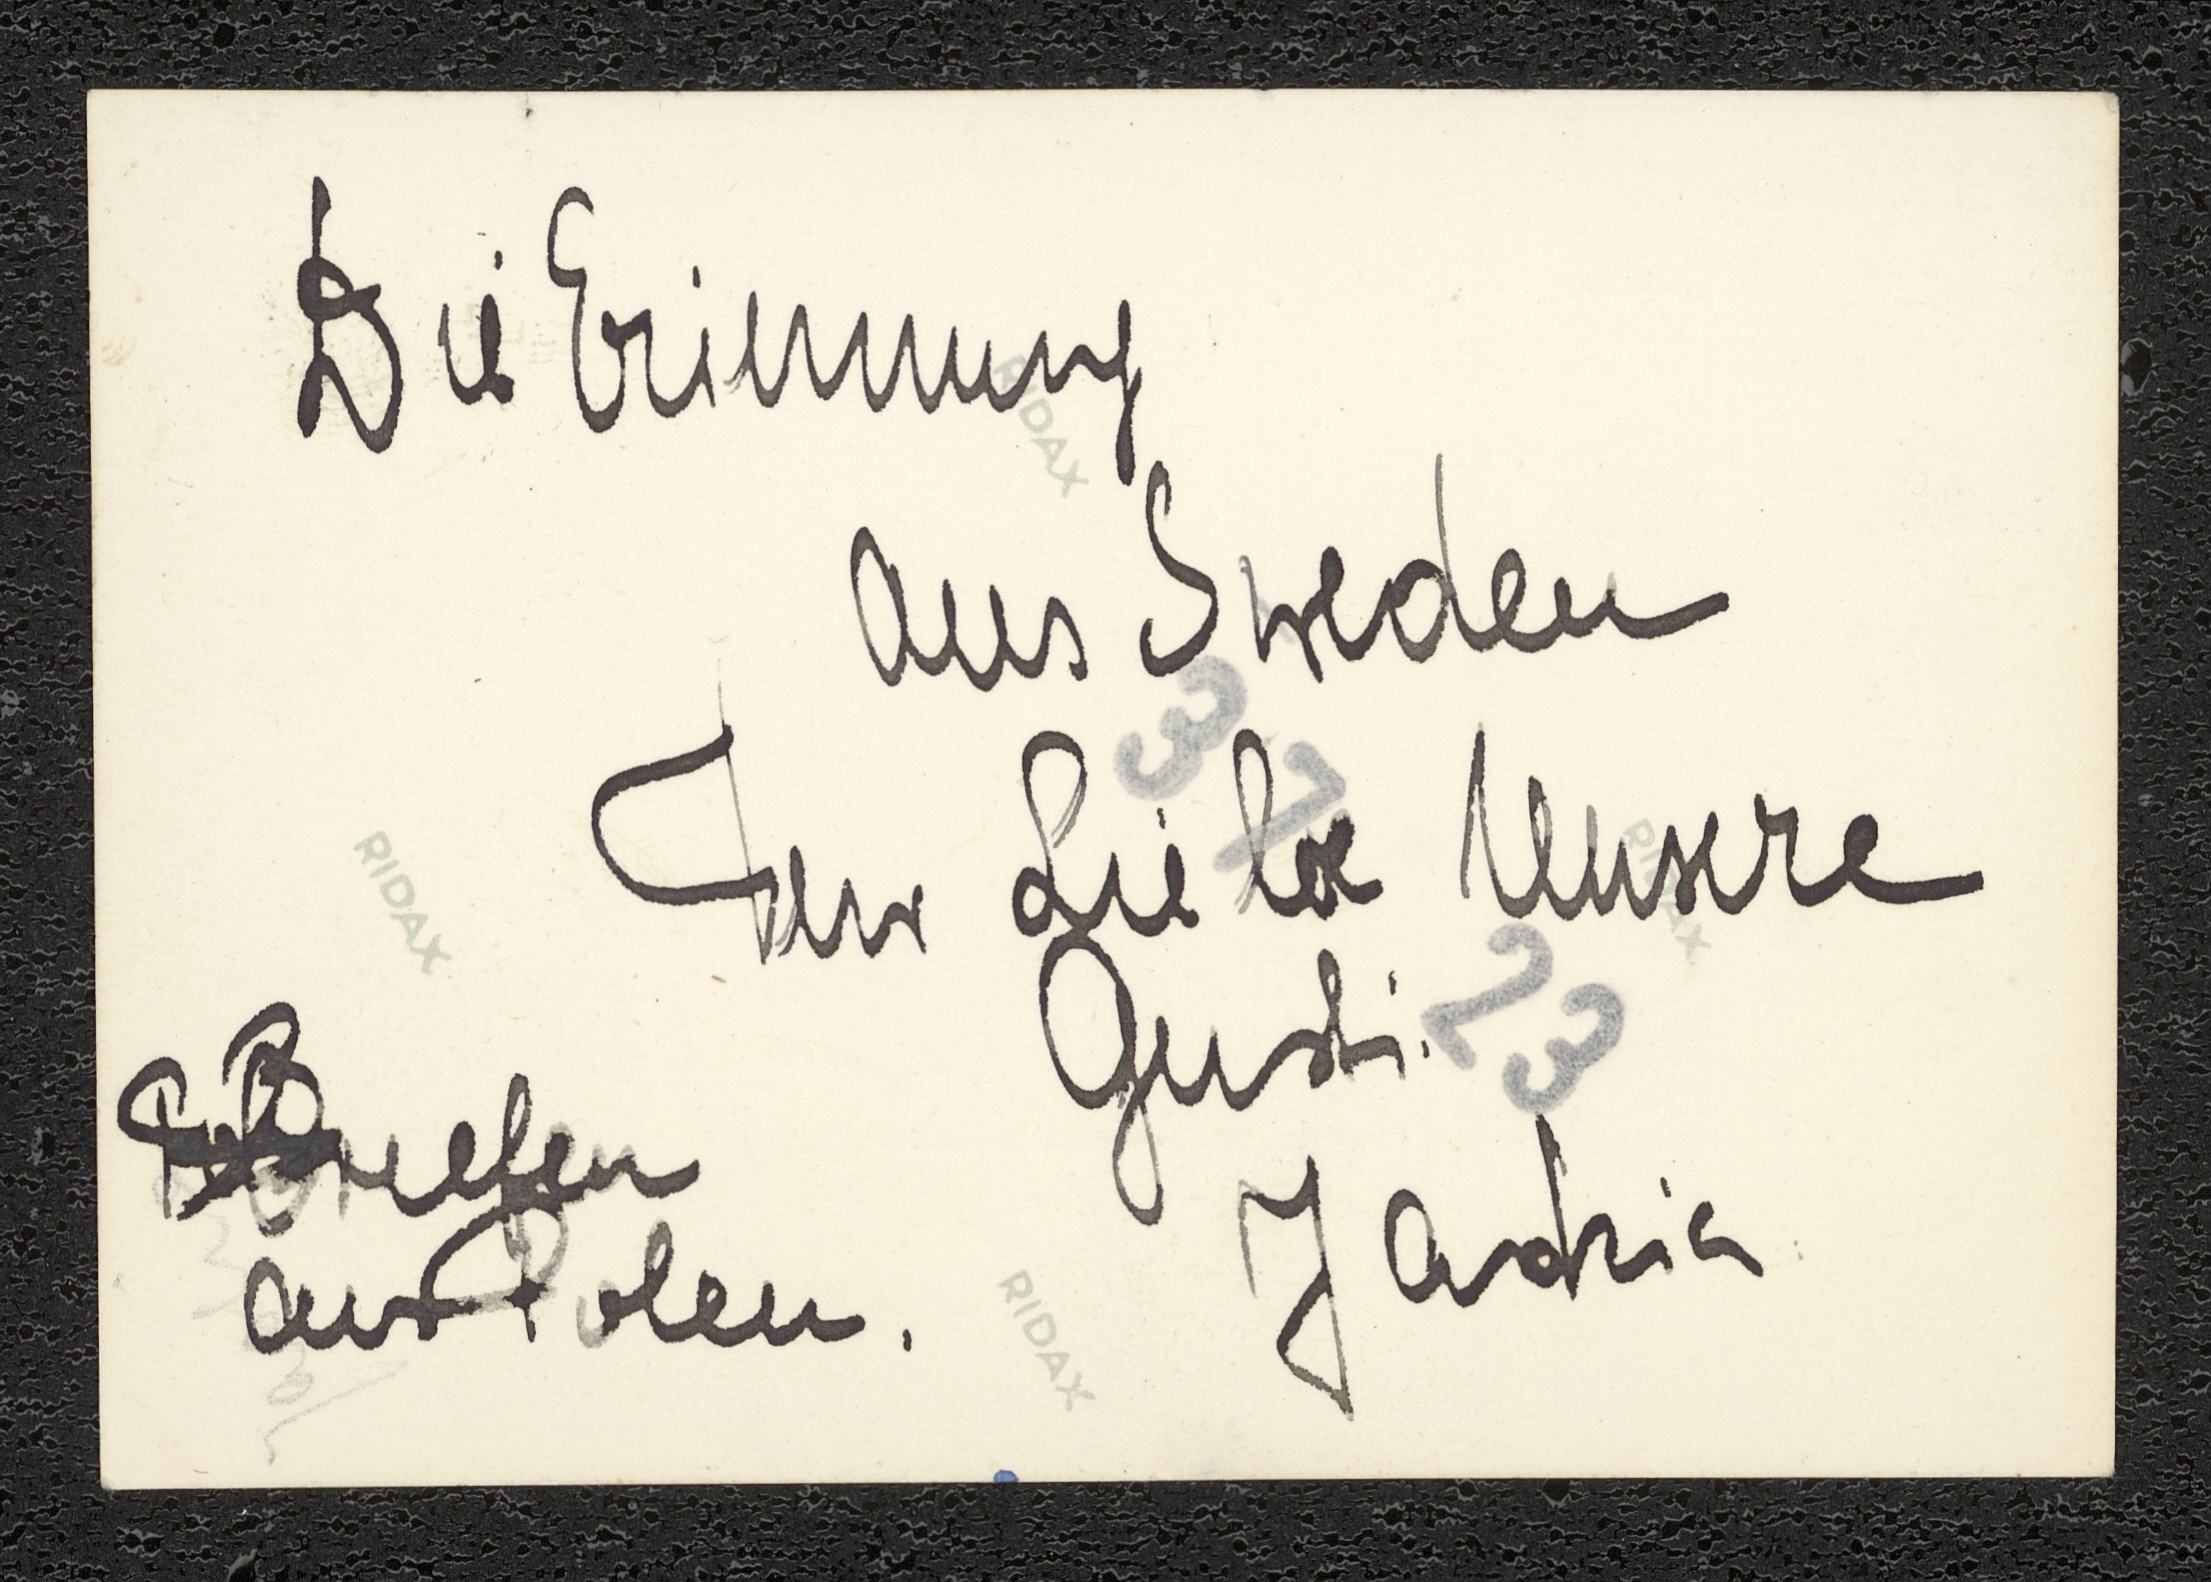 Die Erinnung
aus Sweden
fur Liebe Unsere
Gusti.
Jadzia
Briefen
aus Polen.
RIDAX
RIDAX
RIDAX
RIDAX
37
23